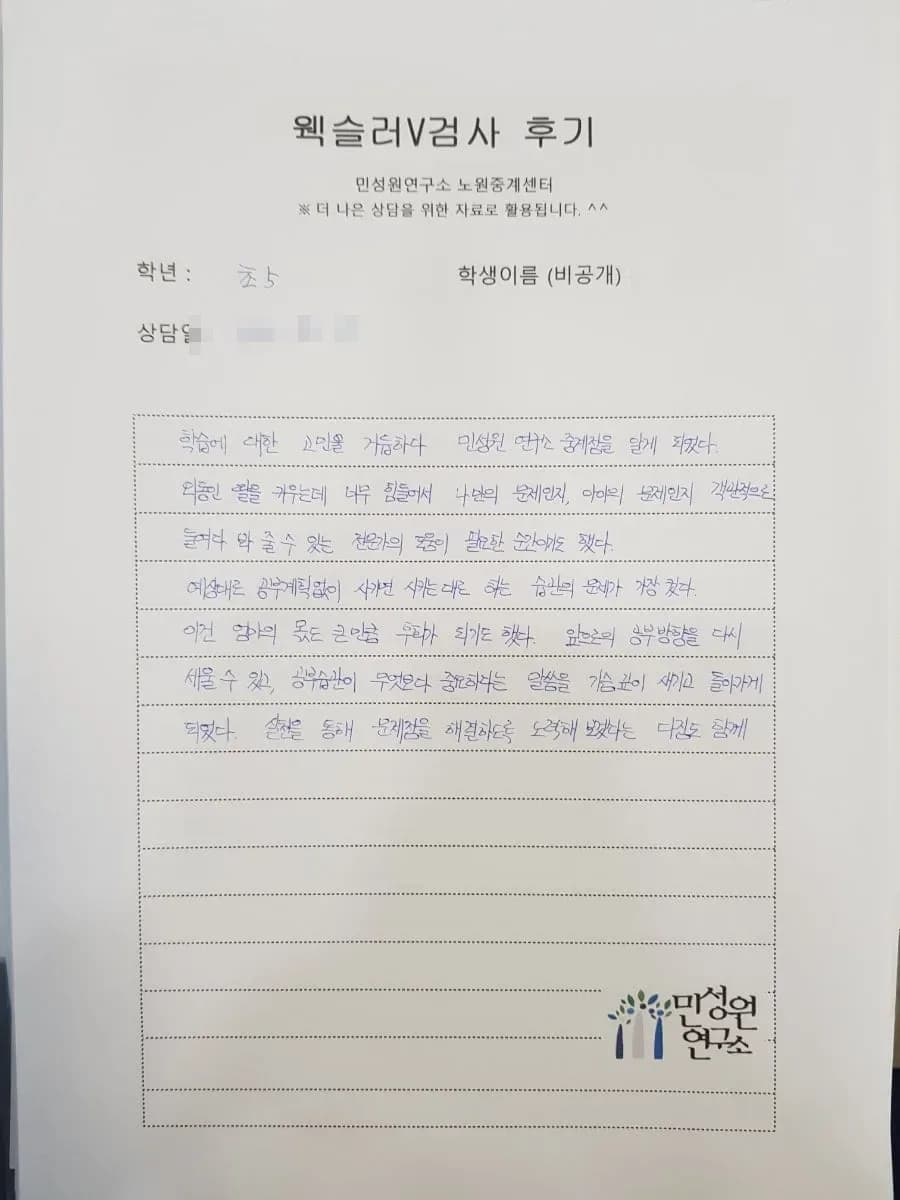 웩슬러V검사 후기
민성원연구소 노원중계센터
※ 더 나은 상담을 위한 자료로 활용됩니다. ^^
학년 : 초5 학생이름 (비공개)
상담일
학습에 대한 고민을 거듭하다 민성원 연구소 중계점을 알게 되었다.
외동인 딸을 키우는데 너무 힘들어서 나만의 문제인지, 아이의 문제인지 객관적으로
들여다 봐 줄 수 있는 전문가의 도움이 필요한 순간이기도 했다.
예상대로 공부계획없이 시키면 시키는대로 하는 습관의 문제가 가장 컸다.
이건 엄마의 몫도 큰만큼 후회가 되기도 했다. 앞으로의 공부방향을 다시
세울 수 있고, 공부습관이 무엇보다 중요하다는 말씀을 가슴깊이 새기고 돌아가게
되었다. 실천을 통해 문제점을 해결하도록 노력해 보겠다는 다짐도 함께
민성원
연구소